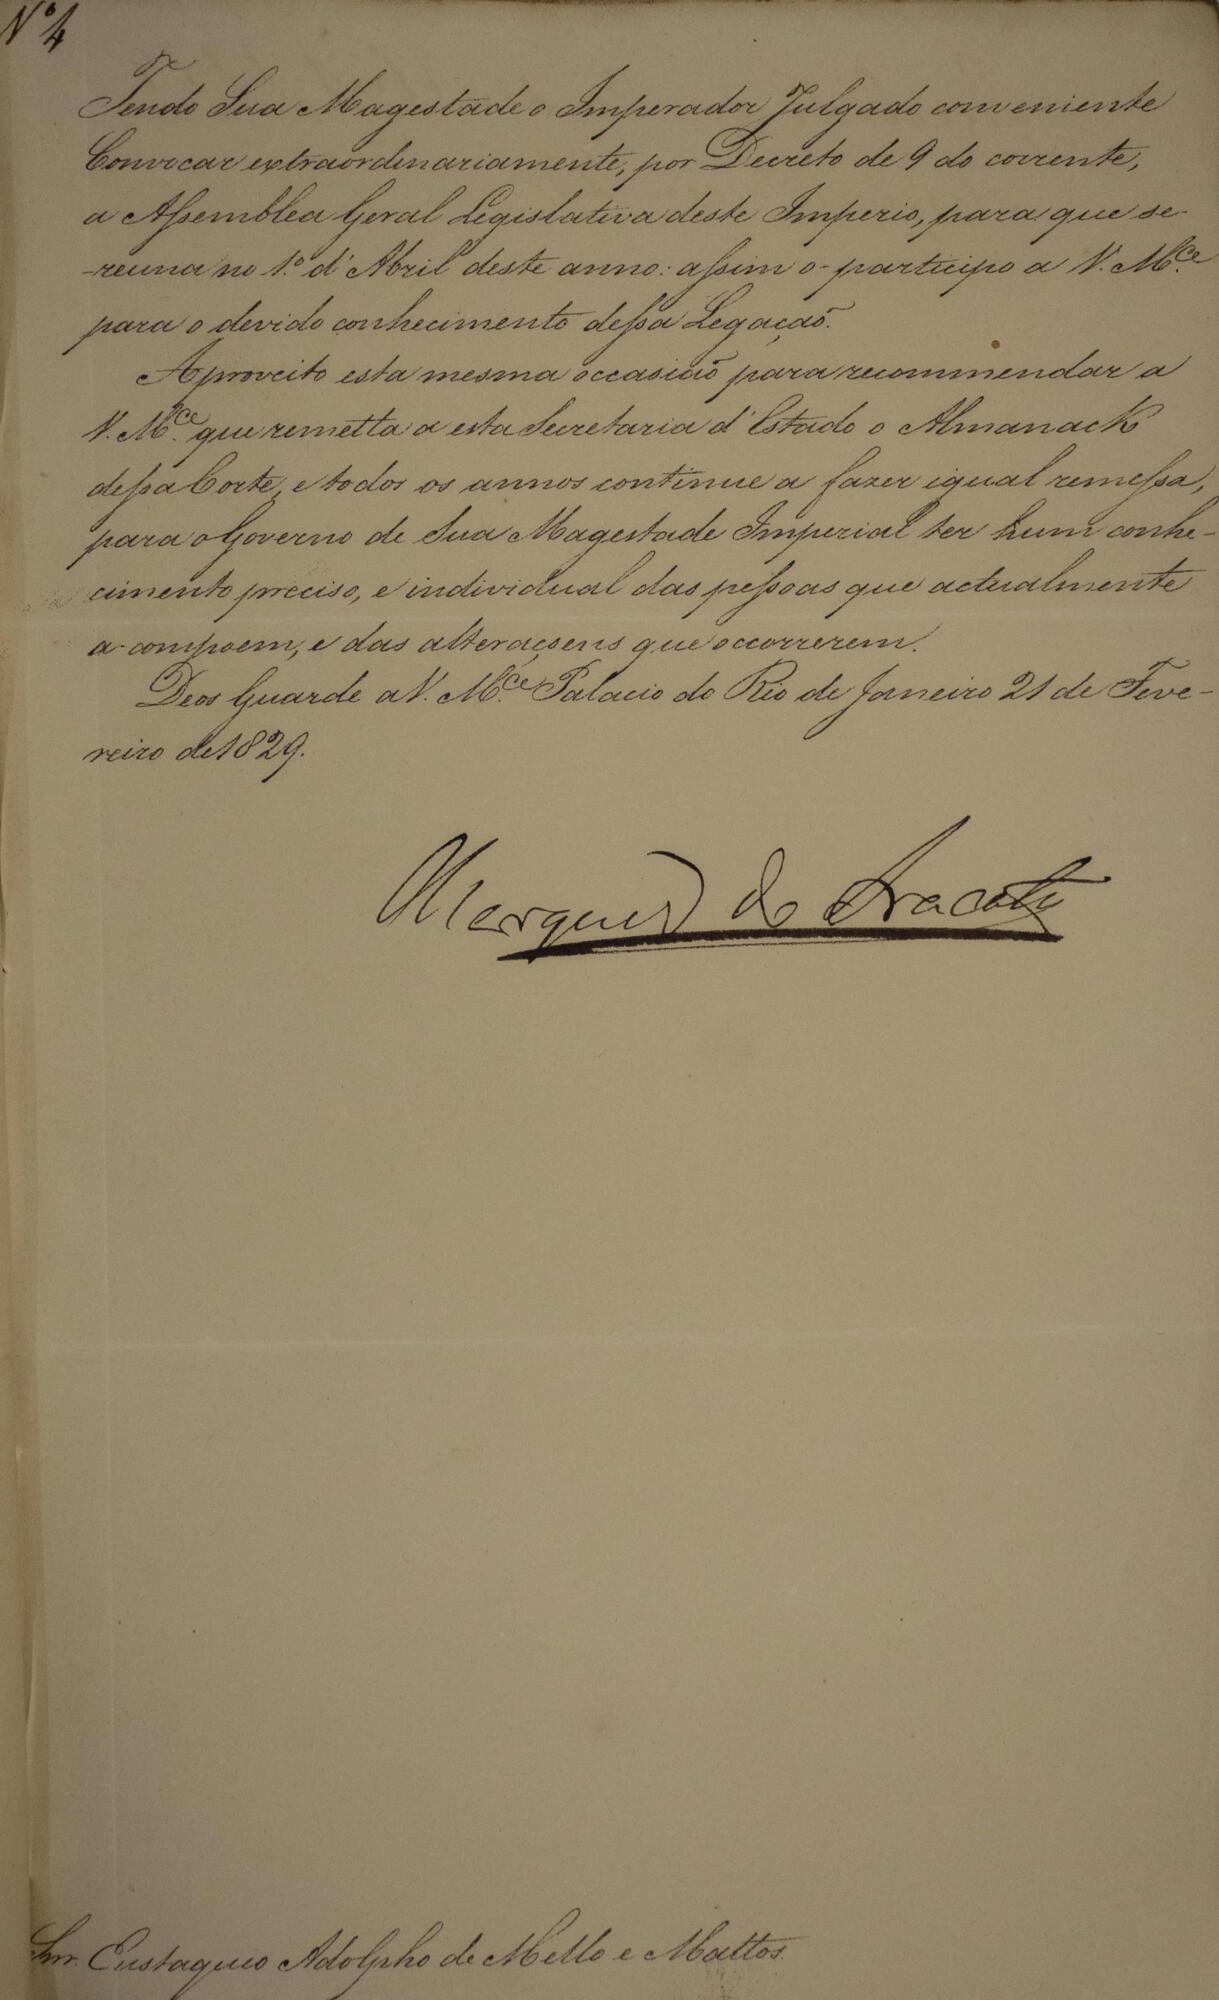 Nº 4
Tendo Sua Magestade o Imperador Julgado conveniente
Convocar extraordinariamente, por Decreto de 9 do corrente,
a Assemblea Geral Legislativa deste Imperio, para que se
-reuna no 1.º d'Abril deste anno: assim o participo a V. M.ce
para o devido conhecimento dessa Legação.
Aproveito esta mesma occasião para recommendar a
V. M.ce que remetta a esta Secretaria d'Estado o Almanack
dessa Corte, e todos os annos continue a fazer igual remessa,
para o Governo de Sua Magestade Imperial ter hum conhe-
cimento preciso, e individual das pessoas que actualmente
a compoem, e das alteraçoens que occorrerem.
Deos Guarde a V. M.ce Palacio do Rio de Janeiro 21 de Feve-
reiro de 1829.
Marquez do Aracaty
Snr. Eustaquio Adolpho de Mello e Mattos.